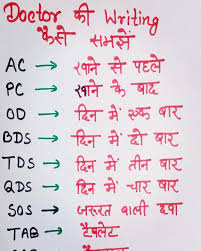 Doctor की Writing
कैसे समझें
AC → खाने से पहले
PC → खाने के बाद
OD → दिन में एक बार
BDS → दिन में दो बार
TDS → दिन में तीन बार
QDS → दिन में चार बार
SOS → जरूरत वाली दवा
TAB → टैबलेट